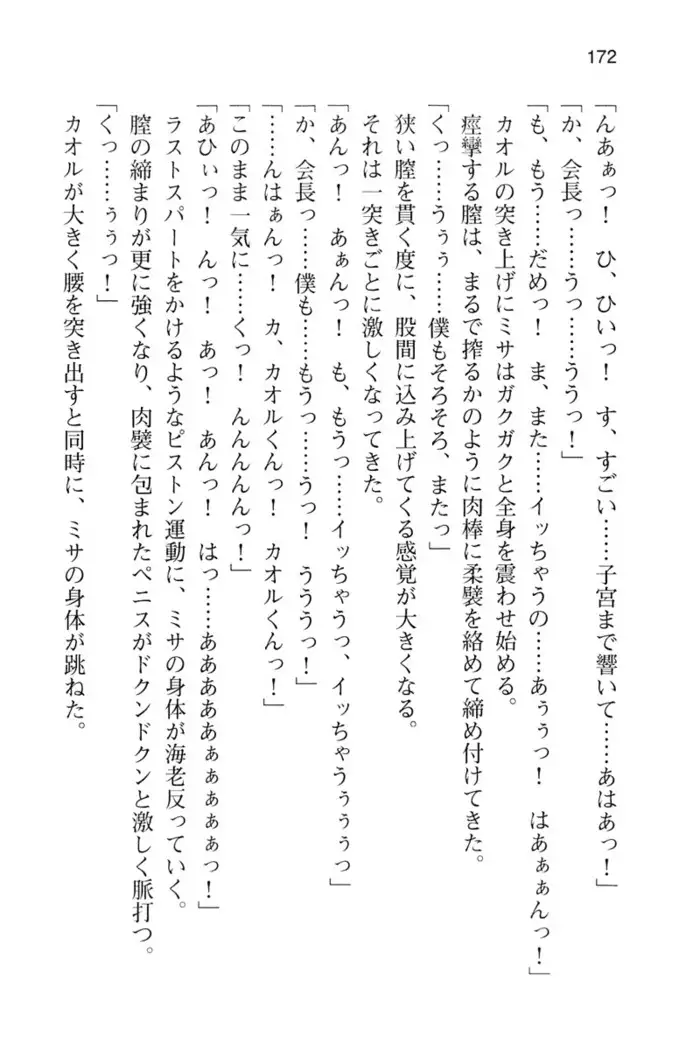 172
「んあぁっ！　ひ、ひいっ！　す、すごい……子宮まで響いて……あはあっ！」
「か、会長っ……うっ……ううっ！」
「も、もう……だめっ！　ま、また……イッちゃうの……あぅぅっ！　はあぁぁんっ！」
カオルの突き上げにミサはガクガクと全身を震わせ始める。
痙攣する膣は、まるで搾るかのように肉棒に柔襞を絡めて締め付けてきた。
「くっ……うぅぅ……僕もそろそろ、またっ」
狭い膣を貫く度に、股間に込み上げてくる感覚が大きくなる。
それは一突きごとに激しくなってきた。
「あんっ！　あぁんっ！　も、もうっ……イッちゃうっ、イッちゃうぅぅぅっ」
「か、会長っ……僕も……もうっ……うっ！　うううっ！」
「……んはぁんっ！　カ、カオルくんっ！　カオルくんっ！」
「このまま一気に……くっ！　んんんんんっ！」
「あひぃっ！　んっ！　あっ！　あんっ！　はっ……あああああぁぁぁぁぁっ！」
ラストスパートをかけるようなピストン運動に、ミサの身体が海老反っていく。
膣の締まりが更に強くなり、肉襞に包まれたペニスがドクンドクンと激しく脈打つ。
「くっ……ぅぅっ！」
カオルが大きく腰を突き出すと同時に、ミサの身体が跳ねた。